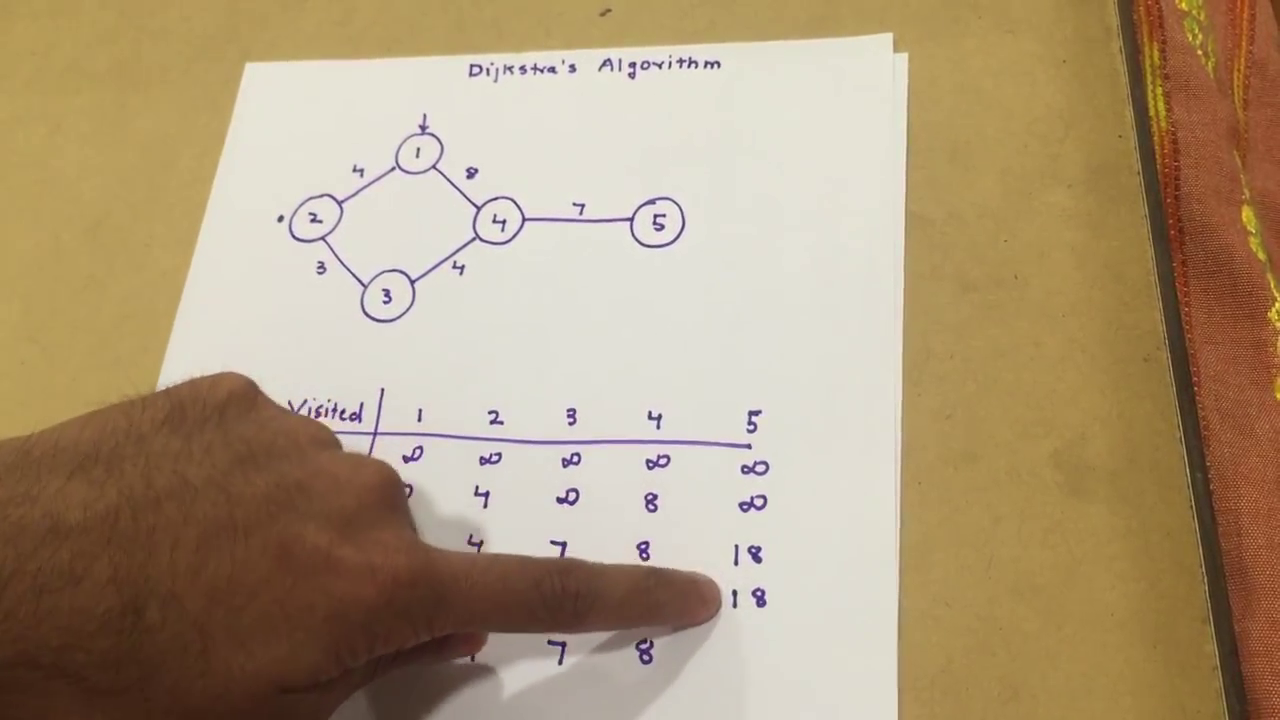 Dijkstra's Algorithm
1
4 8
2 4 7 5
3 4
3
Visited 1 2 3 4 5
∞ ∞ ∞ ∞ ∞
4 ∞ 8 ∞
4 7 8 18
18
7 8